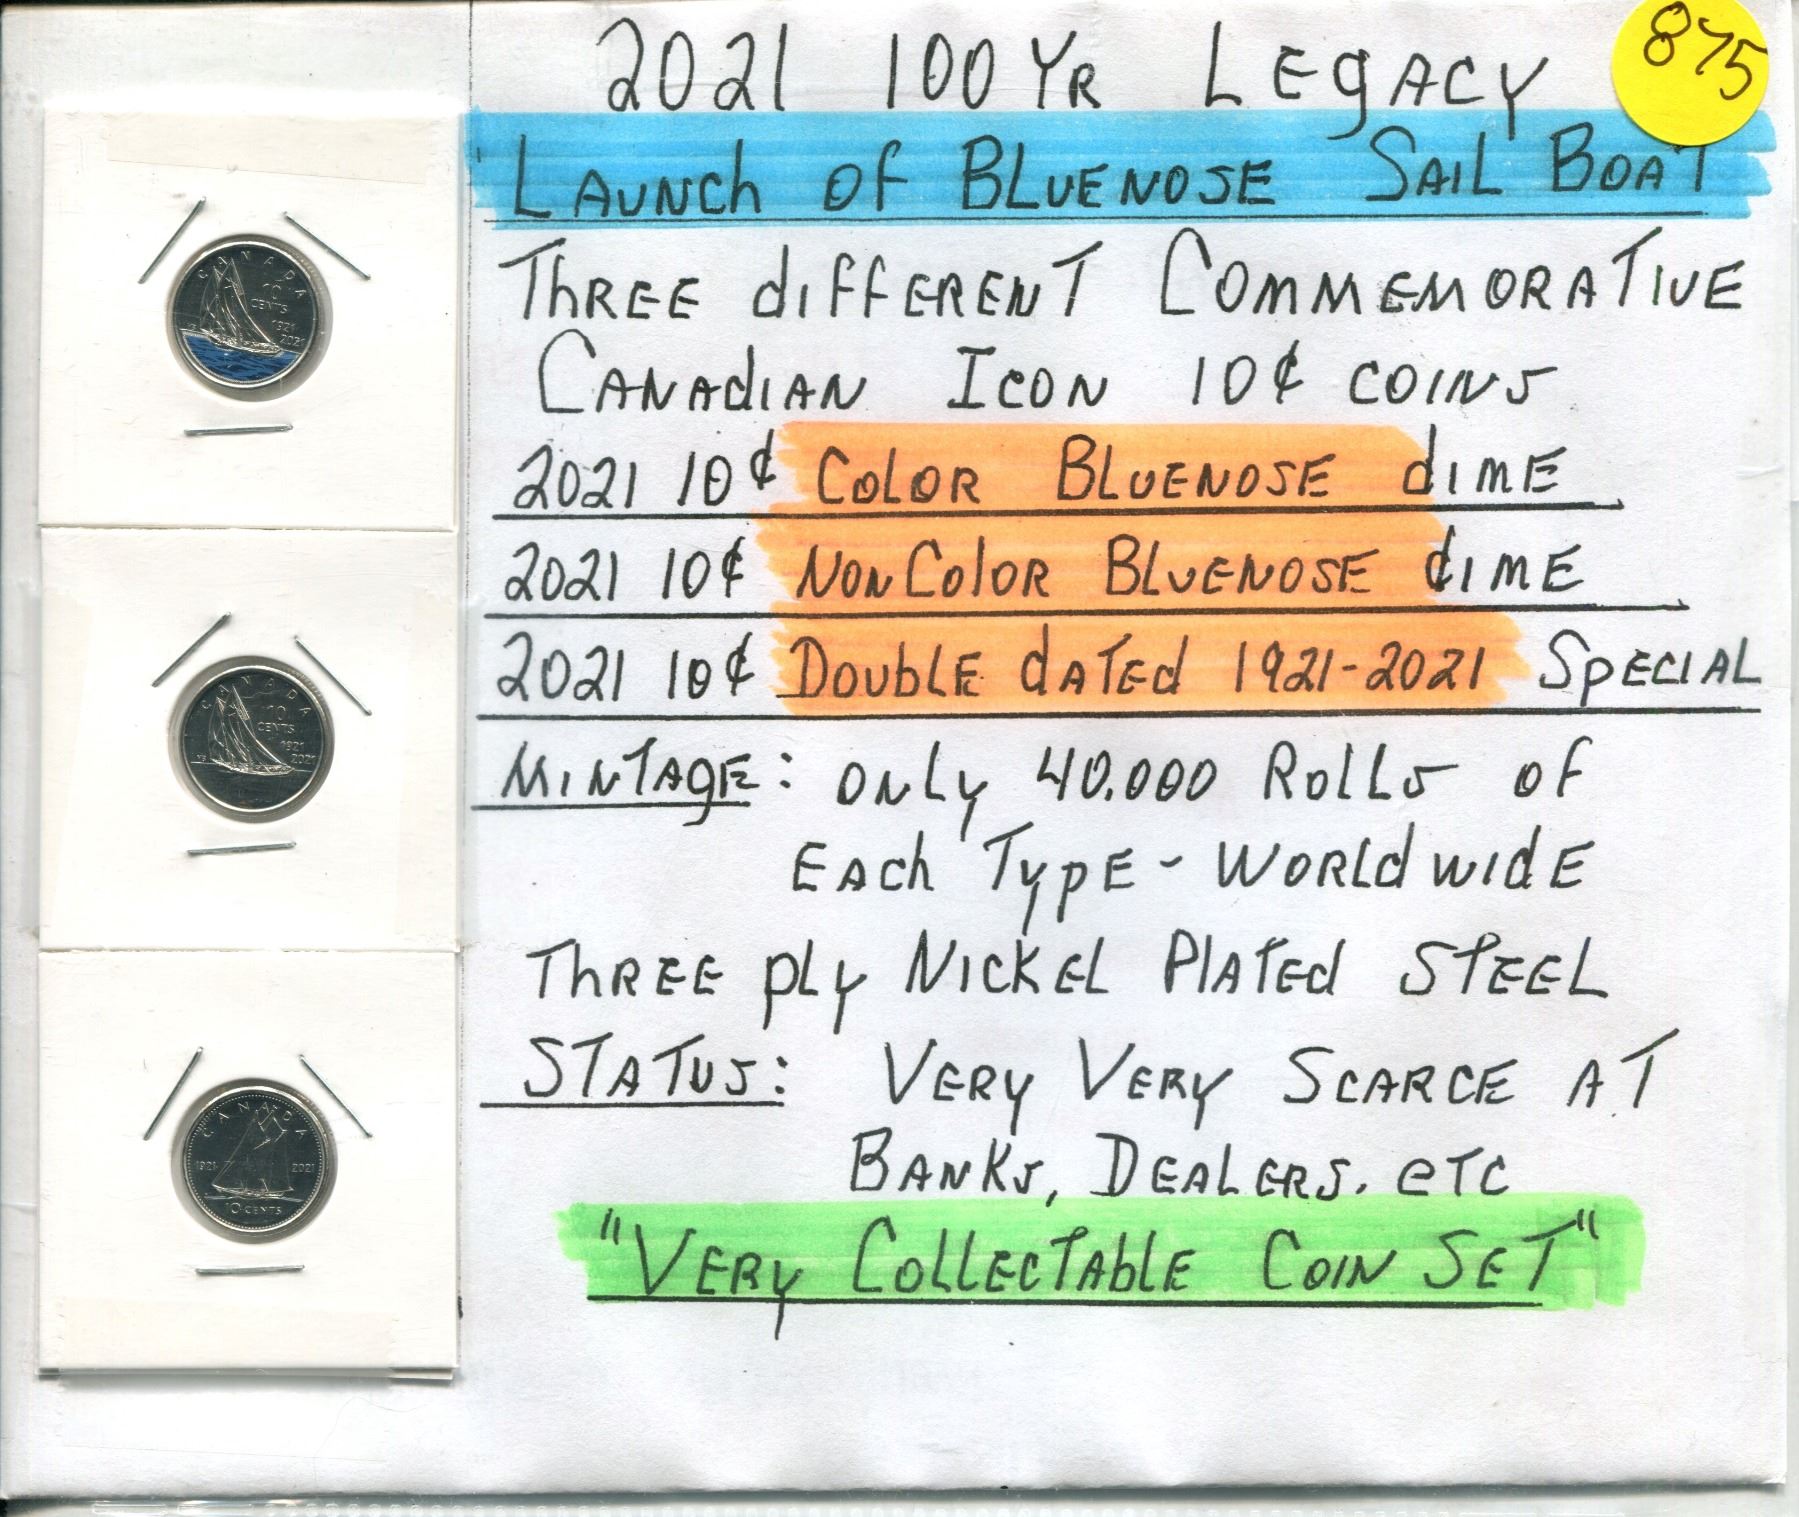 875
2021 100 YR LEGACY
LAUNCH OF BLUENOSE SAIL BOAT
THREE DIFFERENT COMMEMORATIVE
CANADIAN ICON 10¢ COINS
2021 10¢ COLOR BLUENOSE DIME
2021 10¢ NON COLOR BLUENOSE DIME
2021 10¢ DOUBLE DATED 1921-2021 SPECIAL
MINTAGE: ONLY 40.000 ROLLS OF
EACH TYPE - WORLDWIDE
THREE PLY NICKEL PLATED STEEL
STATUS: VERY VERY SCARCE AT
BANKS, DEALERS. ETC
"VERY COLLECTABLE COIN SET"
CANADA
10
CENTS
1921
2021
CANADA
10
CENTS
1921
2021
CANADA
1921 2021
10 CENTS